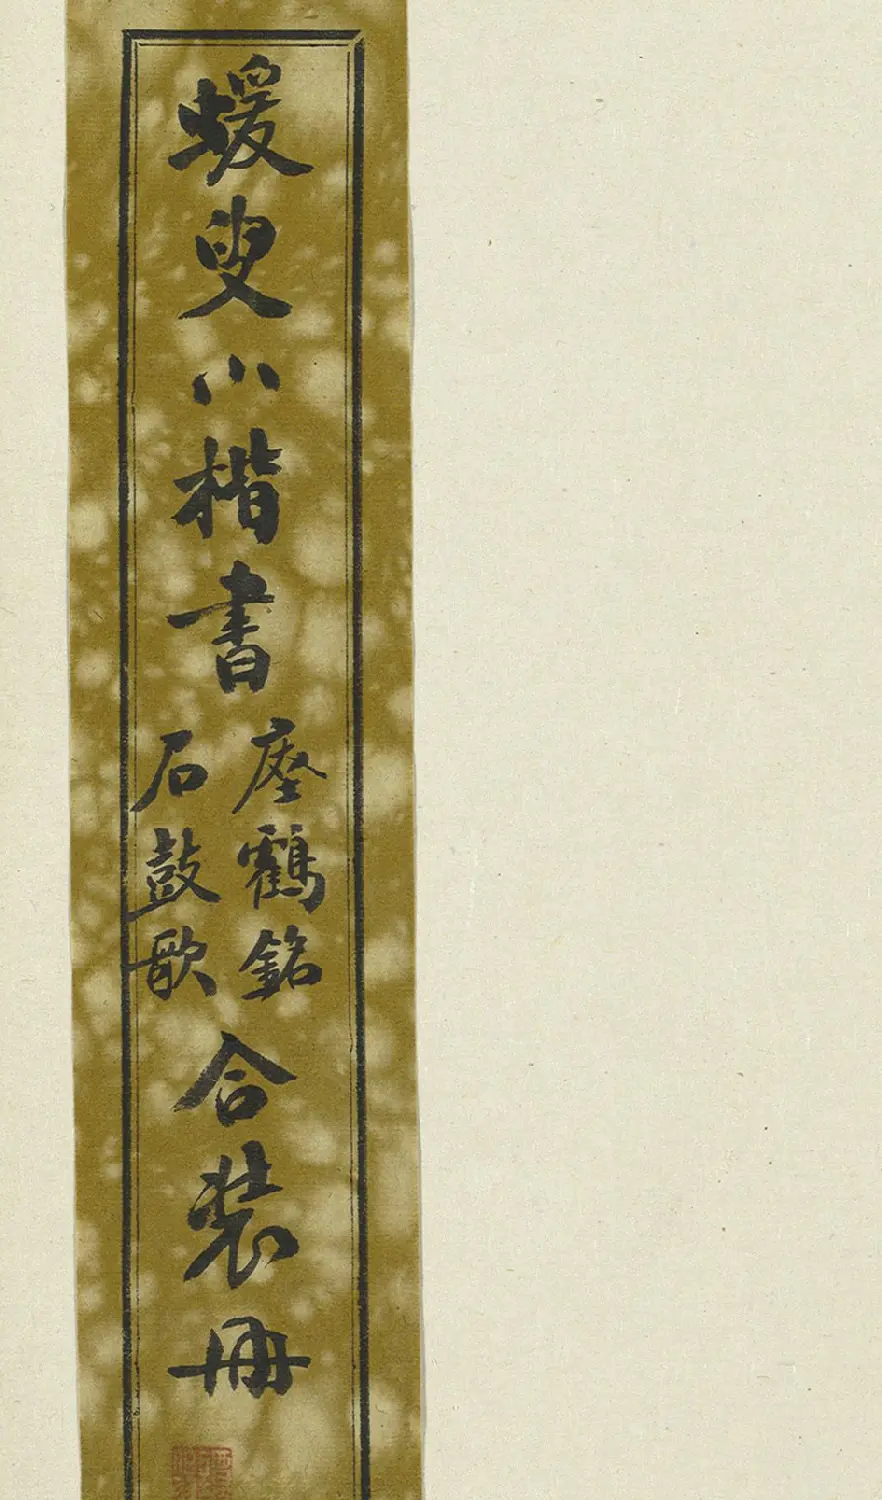 蝯叟小楷書
瘞鶴銘
石鼓歌
合裝冊